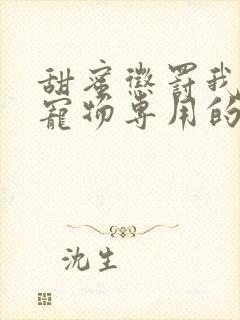 甜蜜懲罰我
寵物專用的
沈生